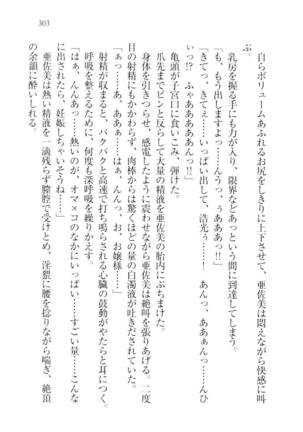 303
自らボリュームあふれるお尻をしきりに上下させて、亜佐美は悶えながら快感に叫
ぶ。
乳房を握る手にも力が入り、限界などあっという間に到達してしまう。
「も、もう出しますよっ……んうっ、うぁあああっ!!」
「きてっ、きてぇ……いっぱい出して、浩光ぅ……!　あんっ、あぁぁっ……んひっ
ぃっ!?　ふぁあああああんっ!!」
亀頭が子宮口に食いこみ、弾けた。
爪先までピンと反らして大量の精液を亜佐美の胎内にぶちまけた。
身体を引きつらせ、感電したように震わせながら亜佐美は絶叫を張りあげる。二度
目の射精にもかかわらず、肉棒からは驚くほどの量の白濁液が吐きだされていた。
「あぁっ……あ、ああぁ……はぁ、んんっ、お、お嬢様……」
射精が収まっても、バクバクと高速で打ち鳴らされる心臓の鼓動がやたらと耳につく。
呼吸を整えるために、何度も深呼吸を繰りかえす。
「はぁ、んんあっ……熱いのが、オマ×コのなかにいっぱい……すごい量……こんな
に出されたら、妊娠しちゃいそうね……」
亜佐美は熱い精液を一滴残らず膣腔で受けとめ、淫猥に腰を捻りながら喘ぎ、絶頂
の余韻に酔いしれる。